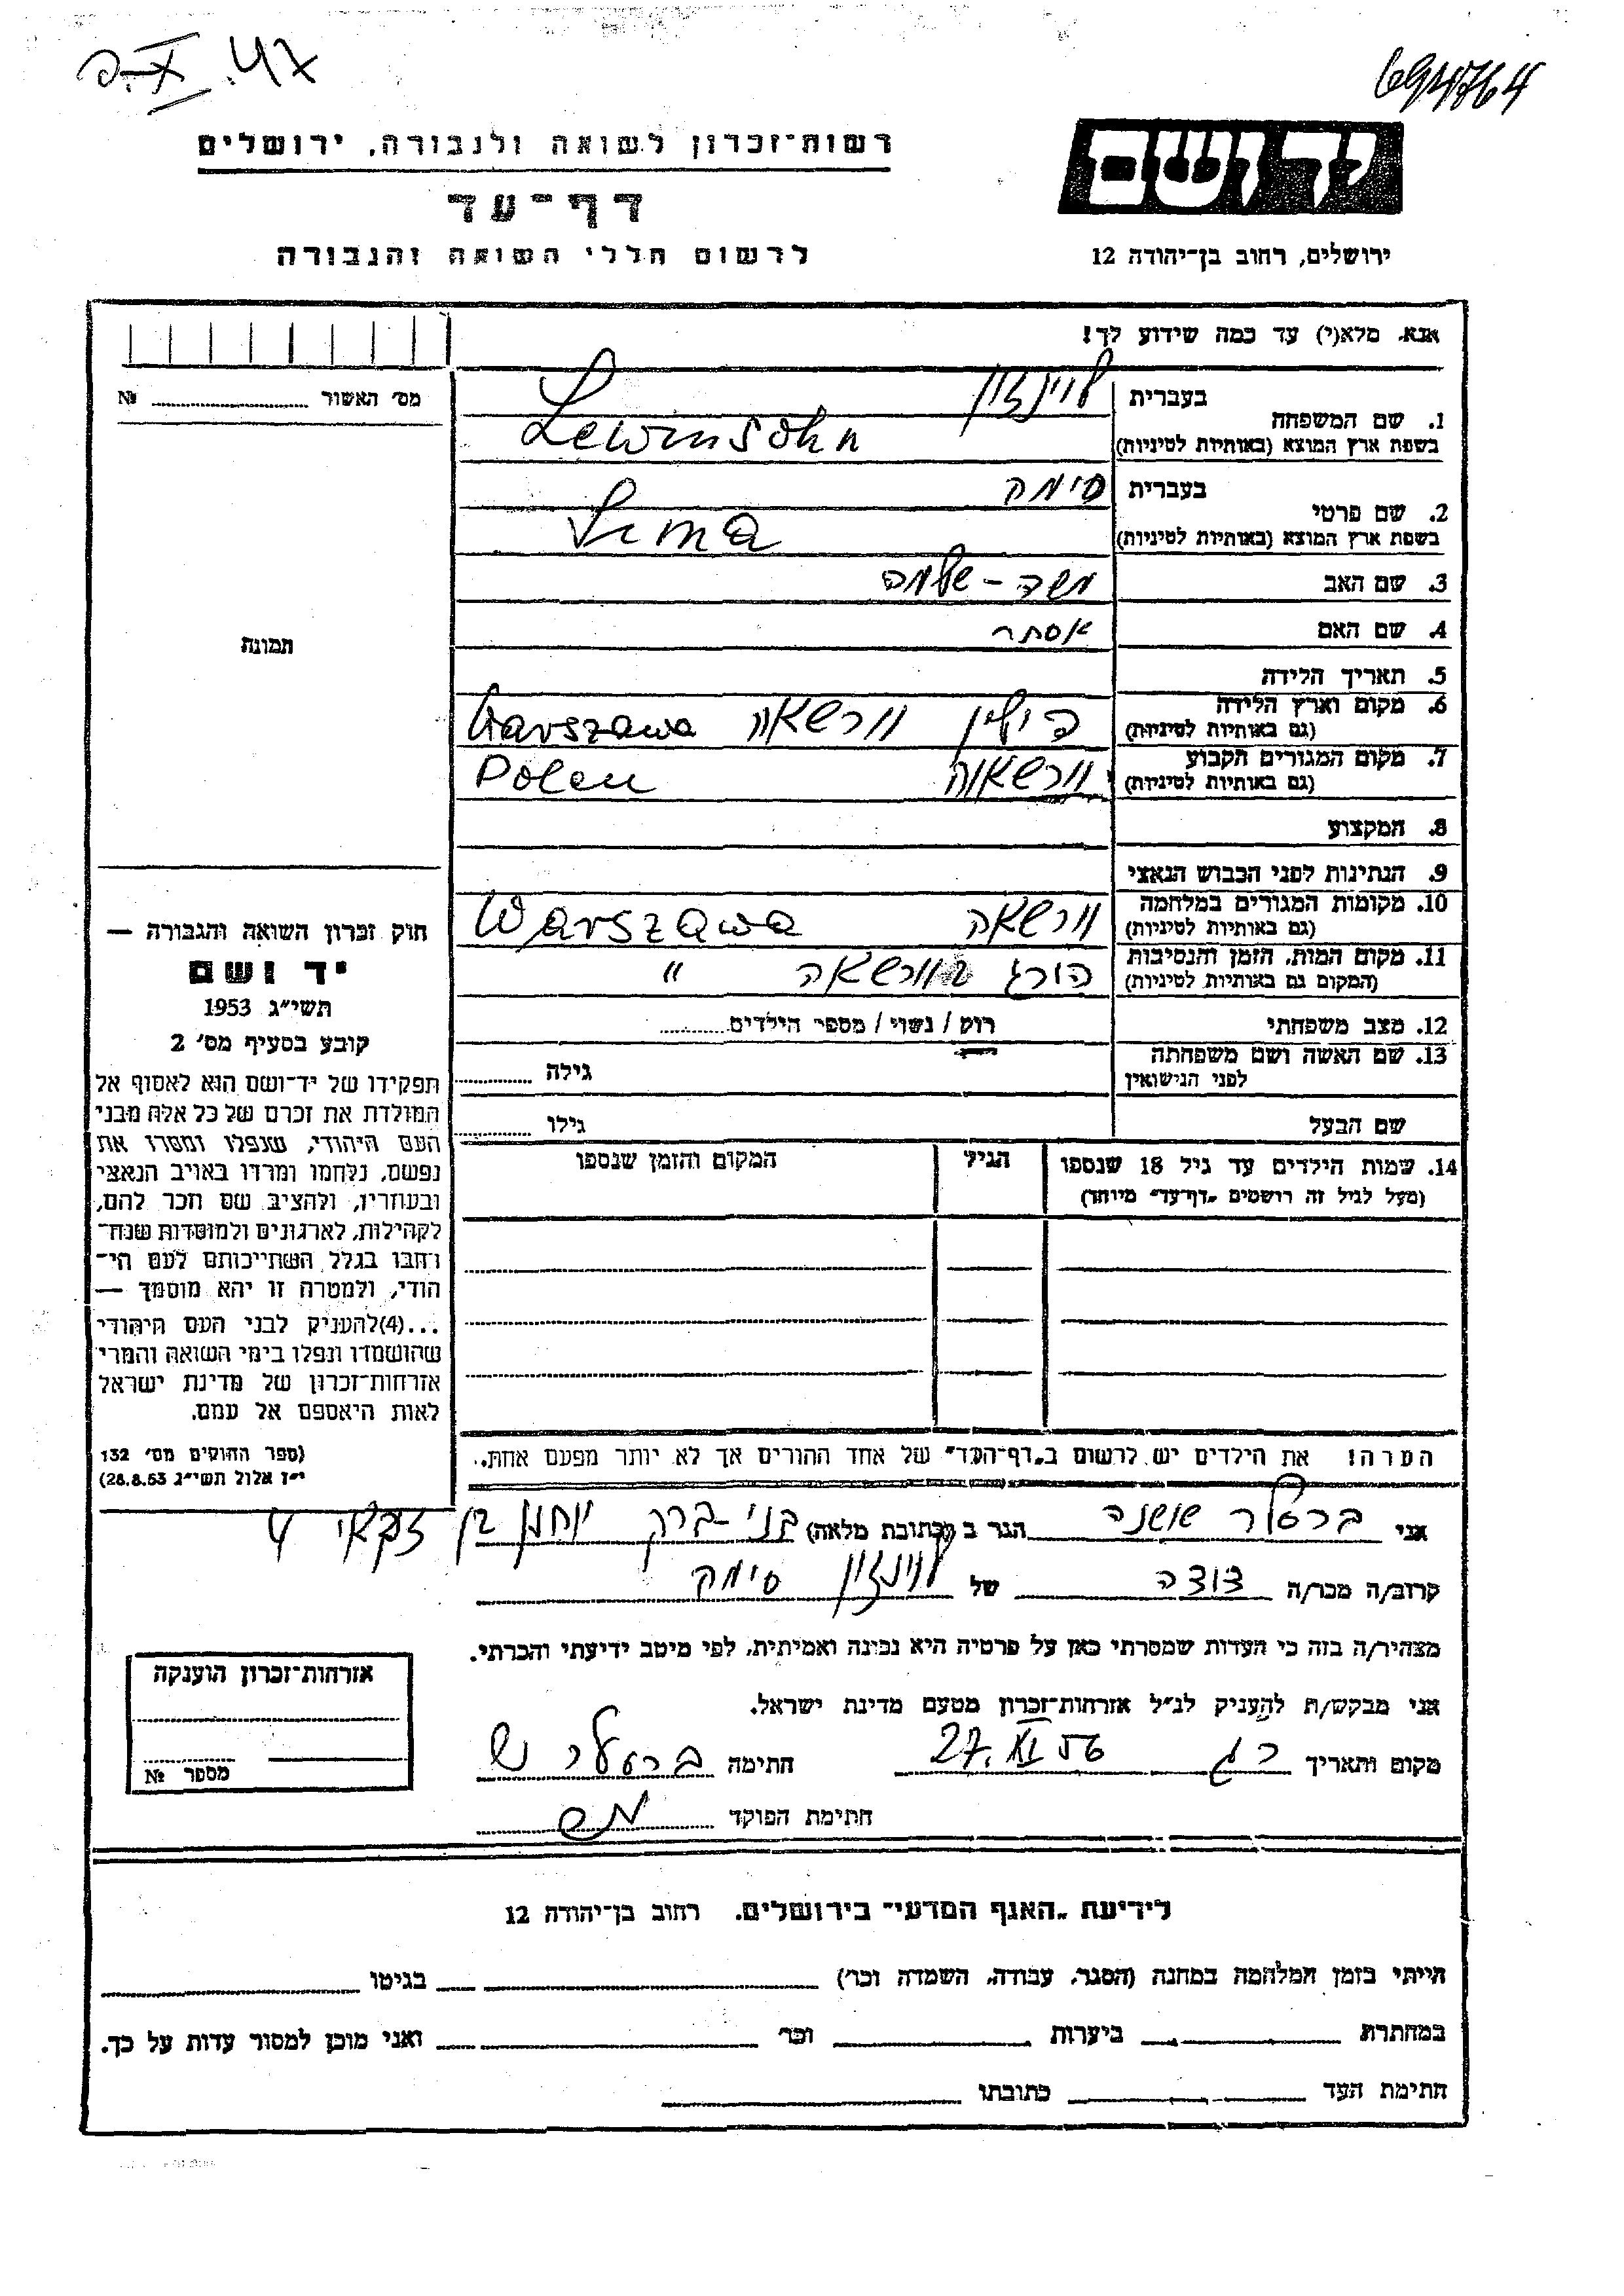 694764
רשות־זכרון לשואה ולגבורה, ירושלים
דף־עד
לרשום חללי השואה והגבורה
יד ושם
ירושלים, רחוב בן־יהודה 12
אנא, מלא(י) עד כמה שידוע לך!
מס׳ האשור № 
1. שם המשפחה
בעברית לוינזון
בשפת ארץ המוצא (באותיות לטיניות) Lewinsohn
2. שם פרטי
בעברית סימה
בשפת ארץ המוצא (באותיות לטיניות) Sima
3. שם האב משה - שלמה
4. שם האם אסתר
5. תאריך הלידה
6. מקום וארץ הלידה פולין וורשאה Warszawa
(גם באותיות לטיניות)
7. מקום המגורים הקבוע וורשאווה Polen
(גם באותיות לטיניות)
8. המקצוע
9. הנתינות לפני הכבוש הנאצי
10. מקומות המגורים במלחמה וורשאה Warszawa
(גם באותיות לטיניות)
11. מקום המות, הזמן והנסיבות הורג בוורשאה "
(המקום גם באותיות לטיניות)
12. מצב משפחתי רוק / נשוי / מספר הילדים
13. שם האשה ושם משפחתה
לפני הנישואין גילה
שם הבעל גילו
14. שמות הילדים עד גיל 18 שנספו הגיל המקום והזמן שנספו
(מעל לגיל זה רושמים „דף־עד״ מיוחד)
תמונה
חוק זכרון השואה והגבורה —
יד ושם
תשי״ג 1953
קובע בסעיף מס׳ 2
תפקידו של יד־ושם הוא לאסוף אל
המולדת את זכרם של כל אלה מבני
העם היהודי, שנפלו ומסרו את
נפשם, נלחמו ומרדו באויב הנאצי
ובעוזריו, ולהציב שם וזכר להם,
לקהילות, לארגונים ולמוסדות שנח־
רבו בגלל השתייכותם לעם הי־
הודי, ולמטרה זו יהא מוסמך —
...(4)להעניק לבני העם היהודי
שהושמדו ונפלו בימי השואה והמרי
אזרחות־זכרון של מדינת ישראל
לאות היאספם אל עמם.
(ספר החוקים מס׳ 132
י״ז אלול תשי״ג 28.8.53)
הערה! את הילדים יש לרשום ב„דף־העד״ של אחד ההורים אך לא יותר מפעם אחת.
אני ברסלר שושנה הגר ב (כתובת מלאה) בני-ברק יוחנן בן זכאי 4
קרוב/ה מכר/ה דודה של לוינזון סימה
מצהיר/ה בזה כי העדות שמסרתי כאן על פרטיה היא נכונה ואמיתית, לפי מיטב ידיעתי והכרתי.
אני מבקש/ת להעניק לנ״ל אזרחות־זכרון מטעם מדינת ישראל.
מקום ותאריך ר״ג 27. XI 56 חתימה ברסלר ש
חתימת הפוקד
אזרחות־זכרון הוענקה
מספר №
לידיעת „האגף המדעי״ בירושלים, רחוב בן־יהודה 12
הייתי בזמן המלחמה במחנה (הסגר, עבודה, השמדה וכו׳) בגיטו
במחתרת ביערות וכו׳ ואני מוכן למסור עדות על כך.
חתימת העד כתובתו